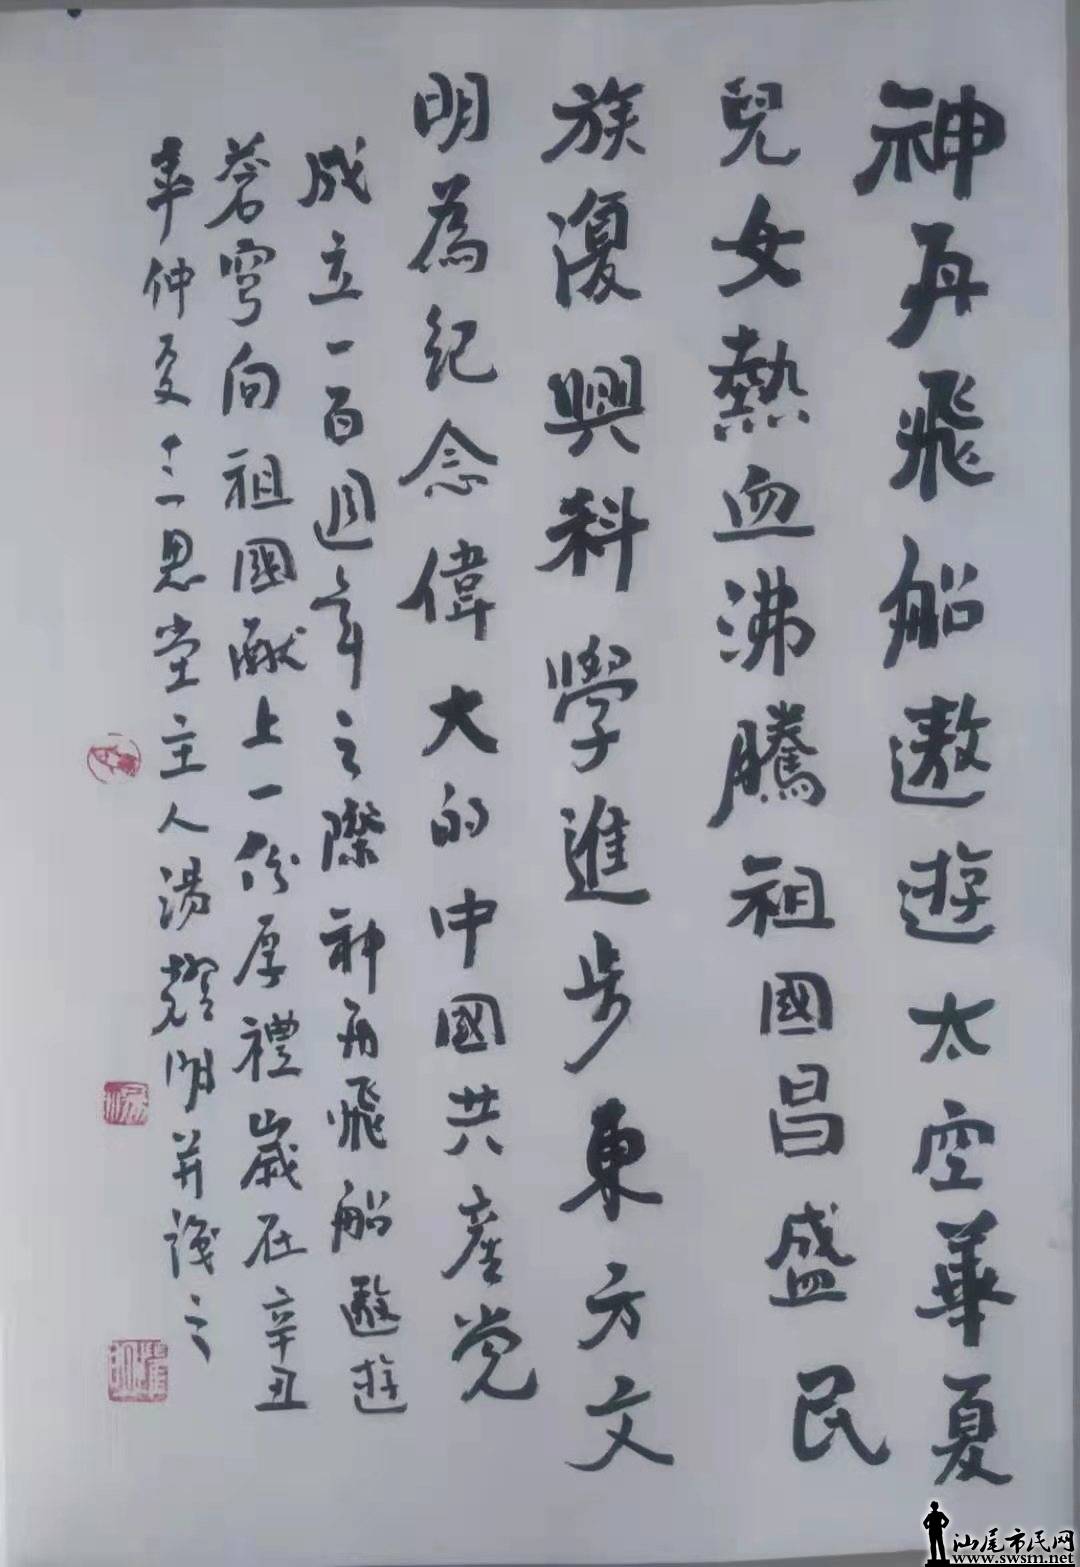 神舟飛船遨遊太空華夏
兒女熱血沸騰祖國昌盛民
族復興科學進步東方文
明為紀念偉大的中國共產党
成立一百週年之際神舟飛船遨遊
蒼穹向祖國献上一份厚禮歲在辛丑
年仲夏十二思堂主人湯耀明并識之
汕尾市民网
www.swsm.net